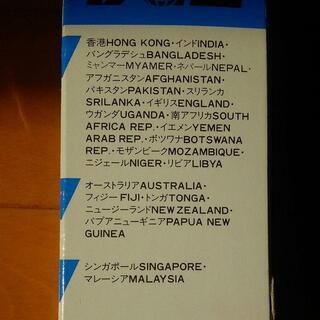 香港HONG KONG・インドINDIA・
バングラデシュBANGLADESH・
ミャンマーMYAMER・ネパールNEPAL・
アフガニスタンAFGHANISTAN・
パキスタンPAKISTAN・スリランカ
SRILANKA・イギリスENGLAND・
ウガンダUGANDA・南アフリカSOUTH
AFRICA REP.・イエメンYEMEN
ARAB REP.・ボツワナBOTSWANA
REP.・モザンビークMOZAMBIQUE・
ニジェールNIGER・リビアLIBYA
オーストラリアAUSTRALIA・
フィジーFIJI・トンガTONGA・
ニュージーランドNEW ZEALAND・
パプアニューギニアPAPUA NEW
GUINEA
シンガポールSINGAPORE・
マレーシアMALAYSIA